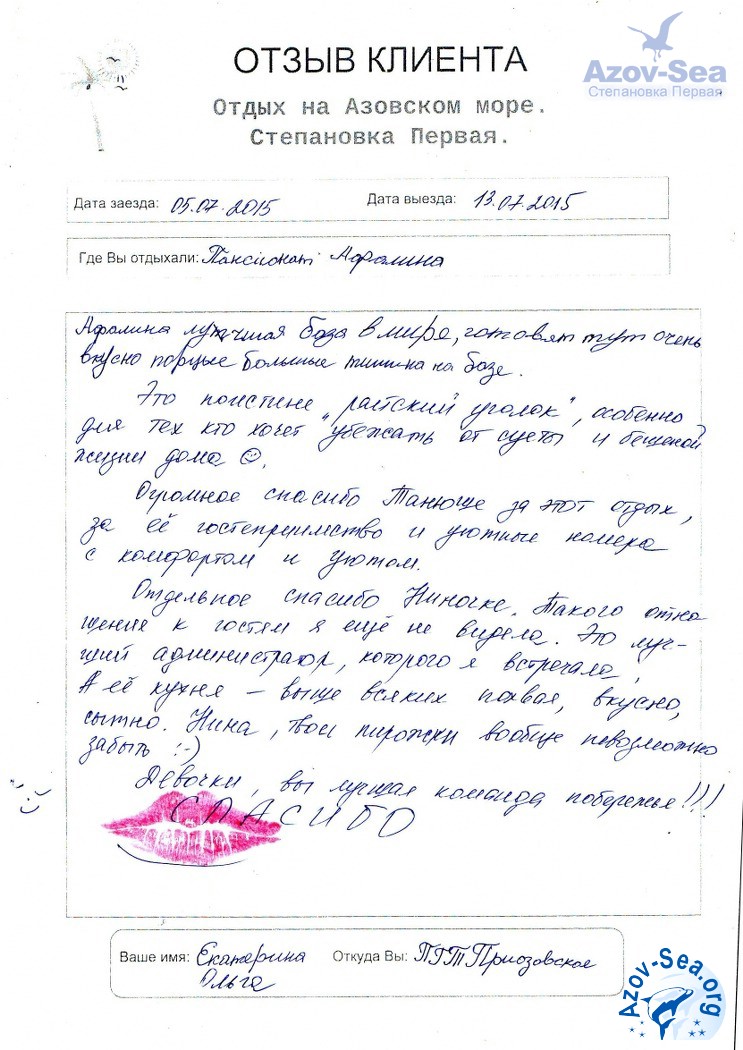 ОТЗЫВ КЛИЕНТА
Azov-Sea
Степановка Первая
Отдых на Азовском море.
Степановка Первая.
Дата заезда: 05.07.2015 Дата выезда: 13.07.2015
Где Вы отдыхали: Пансионат Афалина
Афалина лучшая база в мире, готовят тут очень
вкусно порцые большые тишина на базе.
Это поистине "райский уголок", особенно
для тех кто хочет убежать от суеты и бешеной
жизни дома ☺.
Огромное спасибо Танюше за этот отдых,
за её гостеприимство и уютные номера
с комфортом и уютом.
Отдельное спасибо Ниночке. Такого отно
шение к гостям я ещё не видела. Это луч-
ший администратор, которого я встречала,
А её кухня – выше всяких похвал, вкусно,
сытно. Нина, твои пирожки вообще невозможно
забыть :-)
Девочки, вы лучшая команда побережья!!!
СПАСИБО
Ваше имя: Екатерина Откуда Вы: ПГТ Приозовское
Ольга
Azov-Sea.org